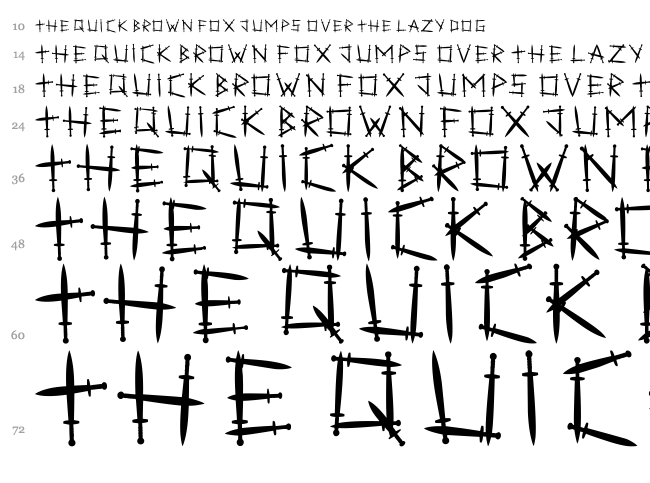 10 THE QUICK BROWN FOX JUMPS OVER THE LAZY DOG
14 THE QUICK BROWN FOX JUMPS OVER THE LAZY
18 THE QUICK BROWN FOX JUMPS OVER T
24 THE QUICK BROWN FOX JUMP
36 THE QUICK BROWN
48 THE QUICK BRO
60 THE QUICK
72 THE QUIC